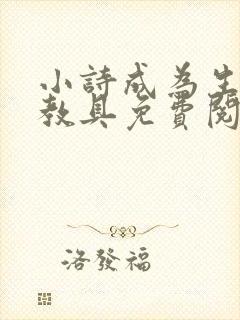 小詩成為生
教具免費閱
洛發福